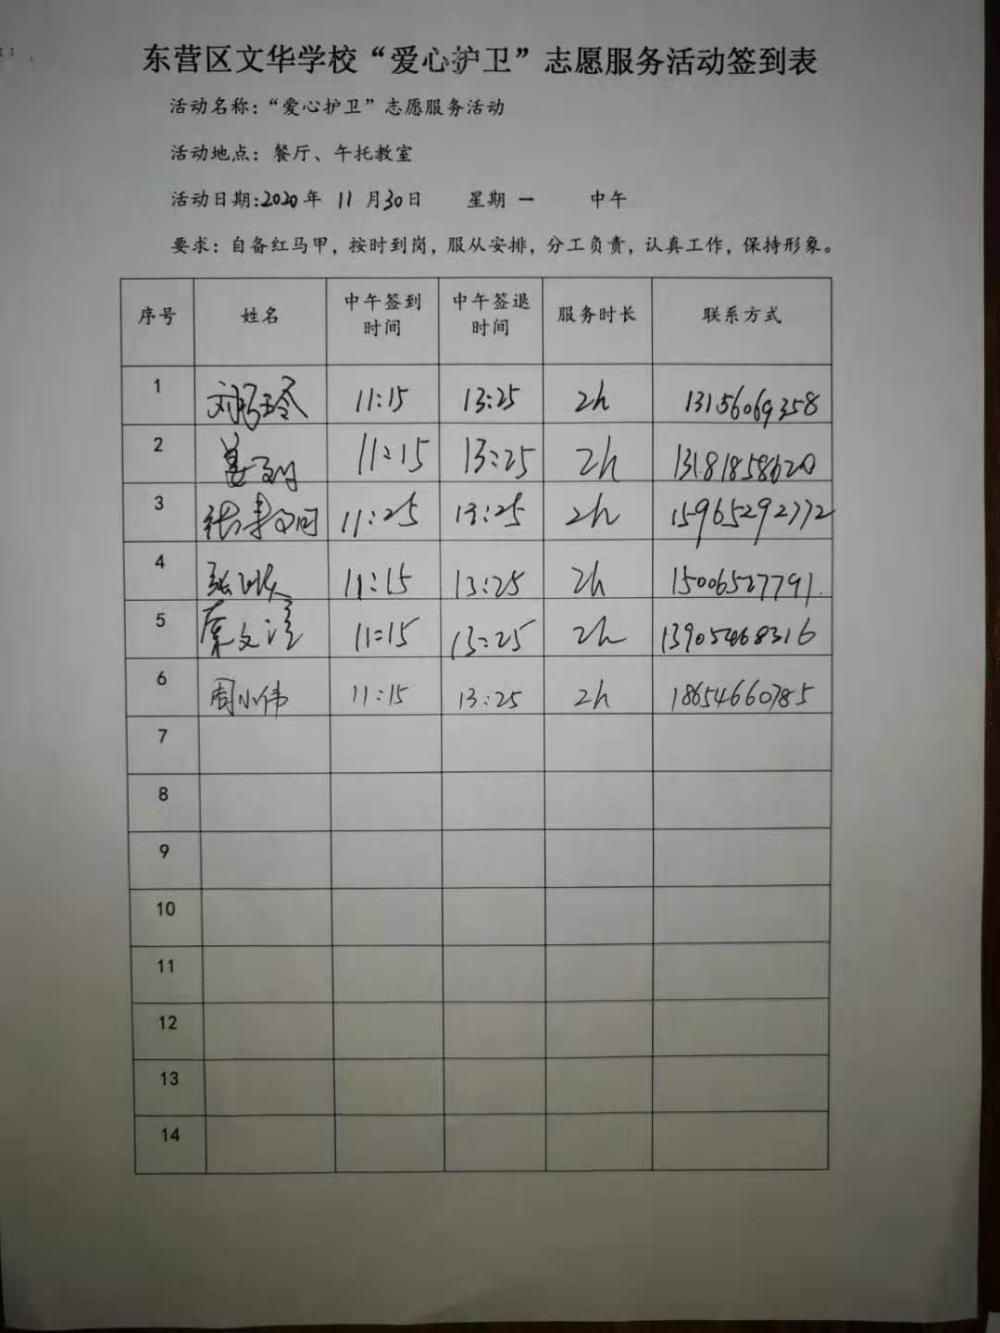 东营区文华学校“爱心护卫”志愿服务活动签到表
活动名称：“爱心护卫”志愿服务活动
活动地点：餐厅、午托教室
活动日期:2020年 11月30日 星期一 中午
要求：自备红马甲，按时到岗，服从安排，分工负责，认真工作，保持形象。
序号 姓名 中午签到时间 中午签退时间 服务时长 联系方式
1 11:15 13:25 2h 13156069358
2 11:15 13:25 2h 13181858620
3 11:25 13:25 2h 15965292772
4 11:15 13:25 2h 15006527791
5 11:15 13:25 2h 13905468316
6 周小伟 11:15 13:25 2h 18654660785
7
8
9
10
11
12
13
14